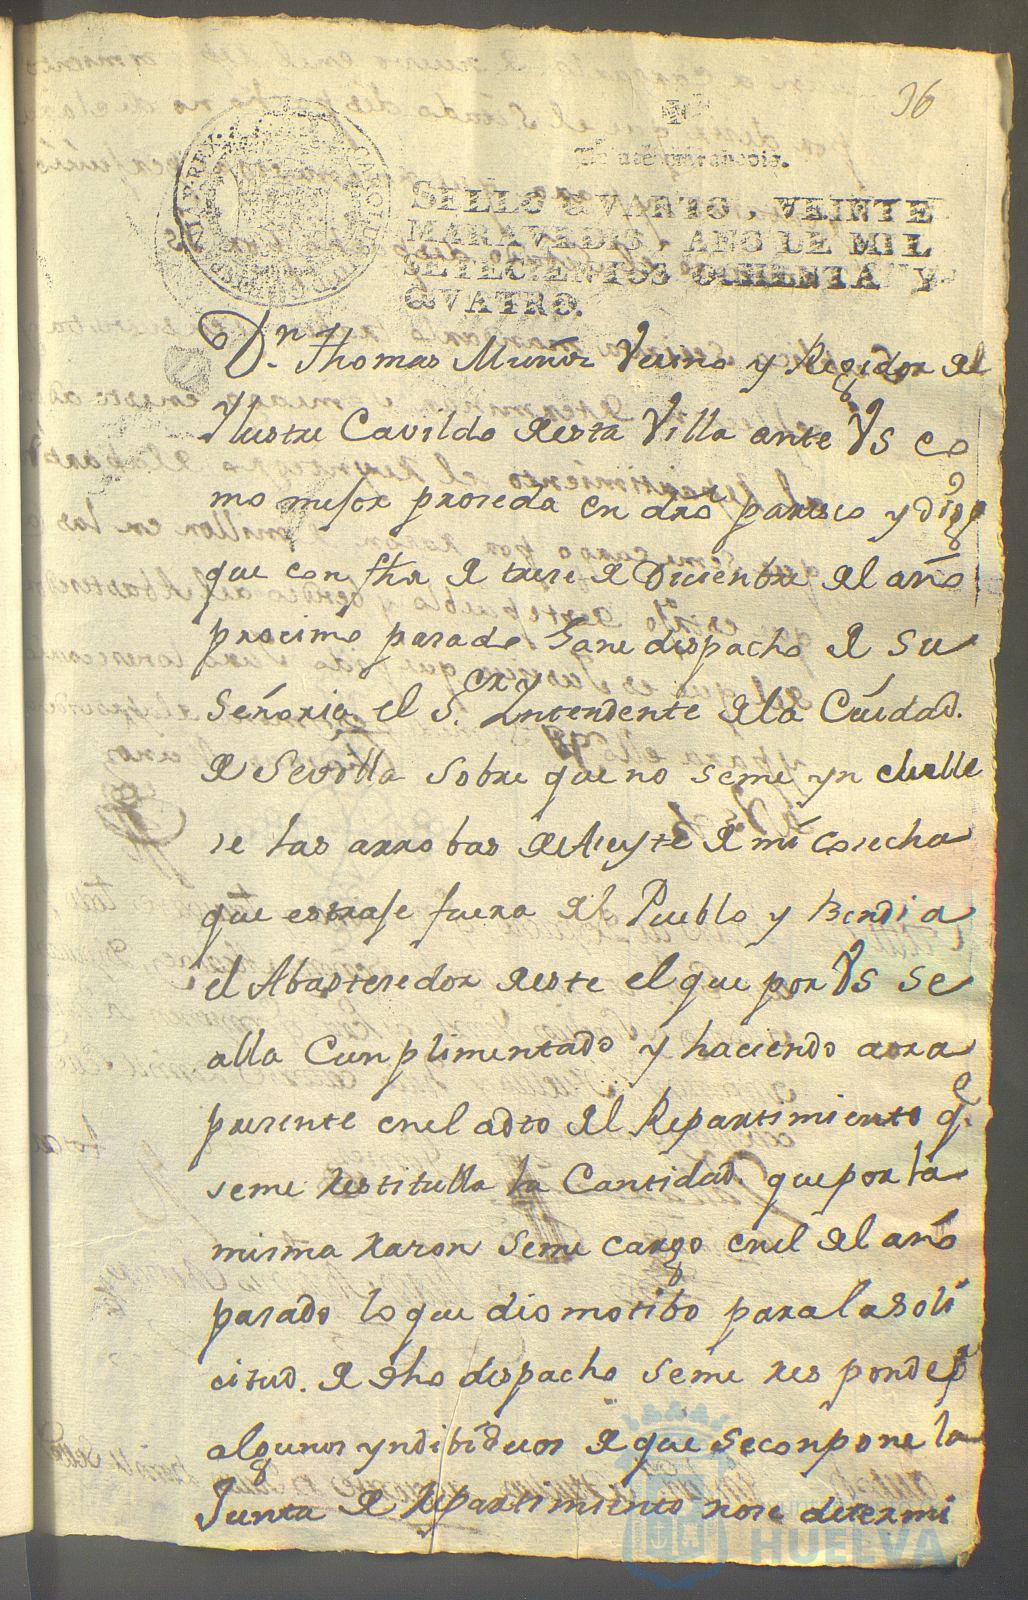 36
Veinte maravedis.
SELLO QVARTO, VEINTE
MARAVEDIS, AÑO DE MIL
SETECIENTOS OCHENTA Y
QVATRO.
Dn. Thomas Muñiz Vecino y Regidor del
Ylustre Cavildo desta Villa ante VS co
mo mejor proseda en dro paresco y digo
que con fha de trese de Diciembre del año
procimo pasado Gane despacho de su
Señoria el Sor. Yntendente de la Ciudad.
de Sevilla sobre que no seme yn clulle
se las arrobas de Aseyte de mi Cosecha
que estraje fuera del Pueblo y Bendi a
el Abastesedor deste el que por VS se
alla Cunplimentado y haciendo aora
presente enel acto del Repartimiento q.e
seme Restitulla la Cantidad. que por la
misma Rason seme cargo enel del año
pasado lo que dio motibo para la soli
citud. de dho despacho seme responde p.r
algunos yndibiduos de que seconpone la
Junta de Repartimiento nose determi
HUELVA